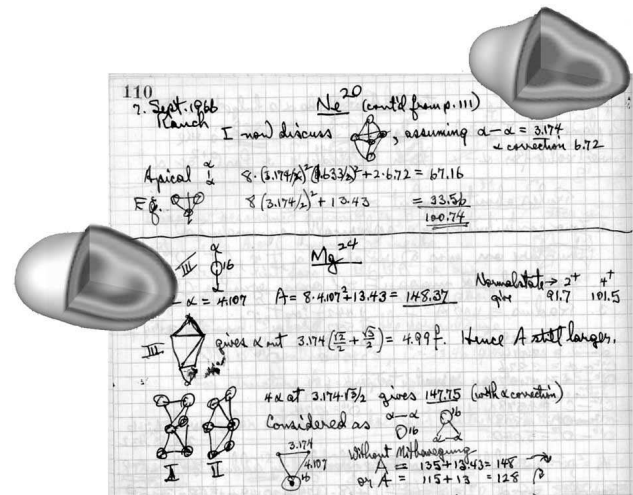 110
7. Sept. 1966
Ranch
Ne²⁰ (cont'd from p. 111)
I now discuss , assuming α–α = 3.174
α correction 6.72
Apical α α 8·(3.174/2)²(1.633/2)² + 2·6.72 = 67.16
Eq. 8(3.174/2)² + 13.43 = 33.56
100.74
Mg²⁴
III α 16 α
α = 4.107 A = 8·4.107² + 13.43 = 148.37
Normal state → 2⁺ 4⁺
give 91.7 101.5
III gives α at 3.174(√2/2 + √3/2) = 4.99f. Hence A still larger.
4α at 3.174·√3/2 gives 147.75 (with α correction)
Considered as α–α O16 O16 α–α
I II
3.174
4.107
16
without
A = 135 + 13.43 = 148
or A = 115 + 13 = 128 β